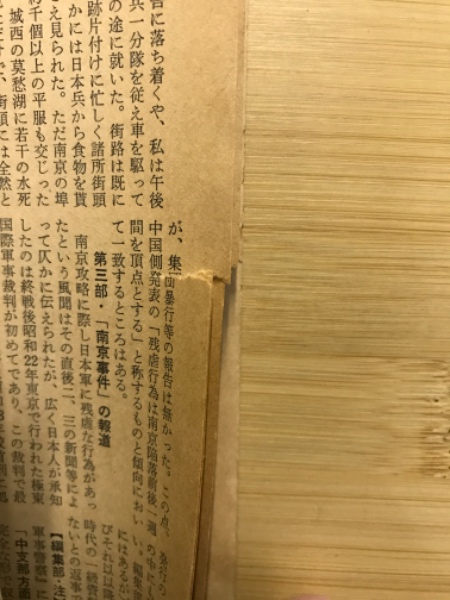 告に落ち着くや、私は午後
兵一分隊を従え車を駆って
の途に就いた。街路は既に
跡片付けに忙しく諸所街頭
かには日本兵から食物を貰
さえ見られた。ただ南京の埠
約千個以上の平服も交じった
城西の莫愁湖に若干の水死
街頭には全然と
が、集団暴行等の報告は無かった。この点、
中国側発表の「残虐行為は南京陥落前後一週
間を頂点とする」と称するものと傾向におい
て一致するところはある。
第三部・「南京事件」の報道
南京攻略に際し日本軍に残虐な行為があっ
たという風聞はその直後二、三の新聞等によ
って仄かに伝えられたが、広く日本人が承知
したのは終戦後昭和22年東京で行われた極東
国際軍事裁判が初めてであり、この裁判で最
の中にし
い。編集部
にはあるだ
びそれ以以降
時代の一級資
ないとの返事で
【編集部・注
軍事警察」に
「中支那方面